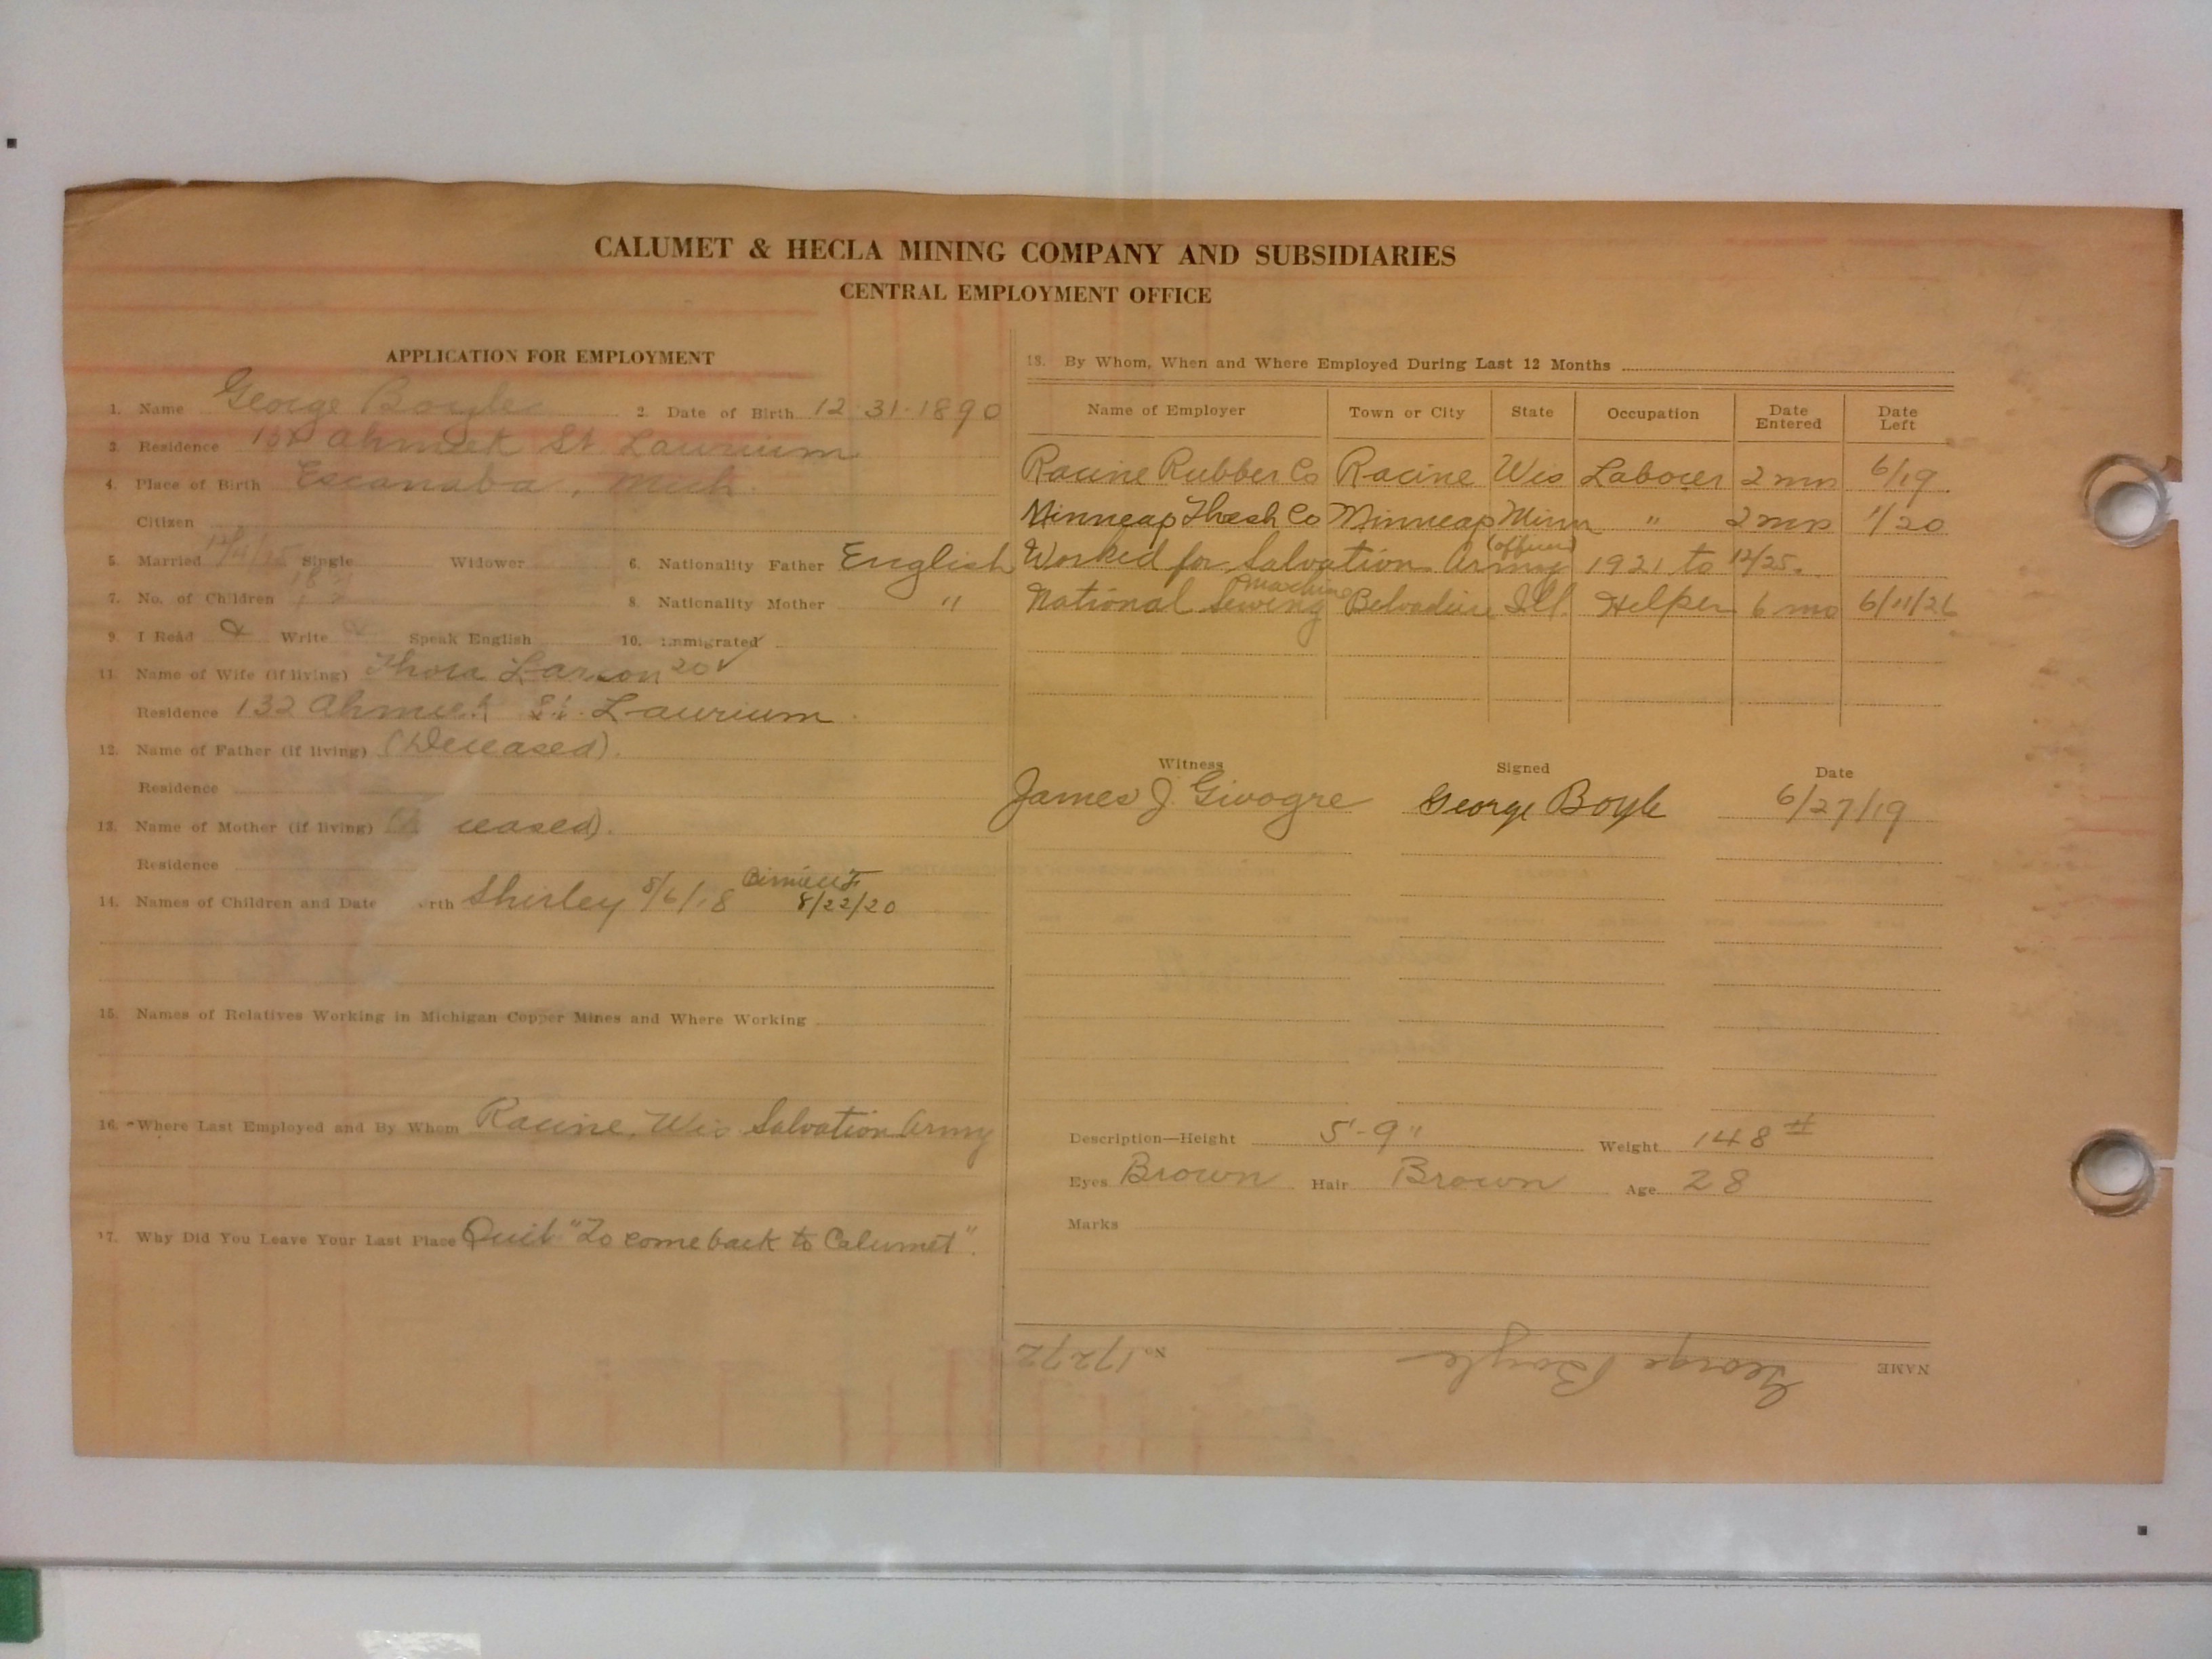 CALUMET & HECLA MINING COMPANY AND SUBSIDIARIES
CENTRAL EMPLOYMENT OFFICE
APPLICATION FOR EMPLOYMENT
1. Name George Boyle 2. Date of Birth 12-31-1890
3. Residence Ahmeek St. Laurium
4. Place of Birth Escanaba, Mich.
Citizen
5. Married Single Widower 6. Nationality Father English
7. No. of Children 8. Nationality Mother "
9. I Read Write Speak English 10. Immigrated
11. Name of Wife (if living) Thora Larson
Residence 132 Ahmeek St. Laurium
12. Name of Father (if living) (Deceased).
Residence
13. Name of Mother (if living) eased).
Residence
14. Names of Children and Date rth Shirley 8/6/18 8/22/20
15. Names of Relatives Working in Michigan Copper Mines and Where Working
16. Where Last Employed and By Whom Racine, Wis Salvation Army
17. Why Did You Leave Your Last Place Quit "To come back to Calumet".
13. By Whom, When and Where Employed During Last 12 Months
Name of Employer Town or City State Occupation Date Entered Date Left
Racine Rubber Co Racine Wis Laborer 2 mos 6/19
Minneap Thresh Co Minneap Minn " 2 mos 1/20
Worked for Salvation Army (officer) 1921 to 12/25.
National Sewing Machine Belvedire Ill. Helper 6 mo 6/11/26
Witness Signed Date
James J. Givogre George Boyle 6/27/19
Description—Height 5'-9" Weight 148 #
Eyes Brown Hair Brown Age 28
Marks
NAME George Boyle No. 17272